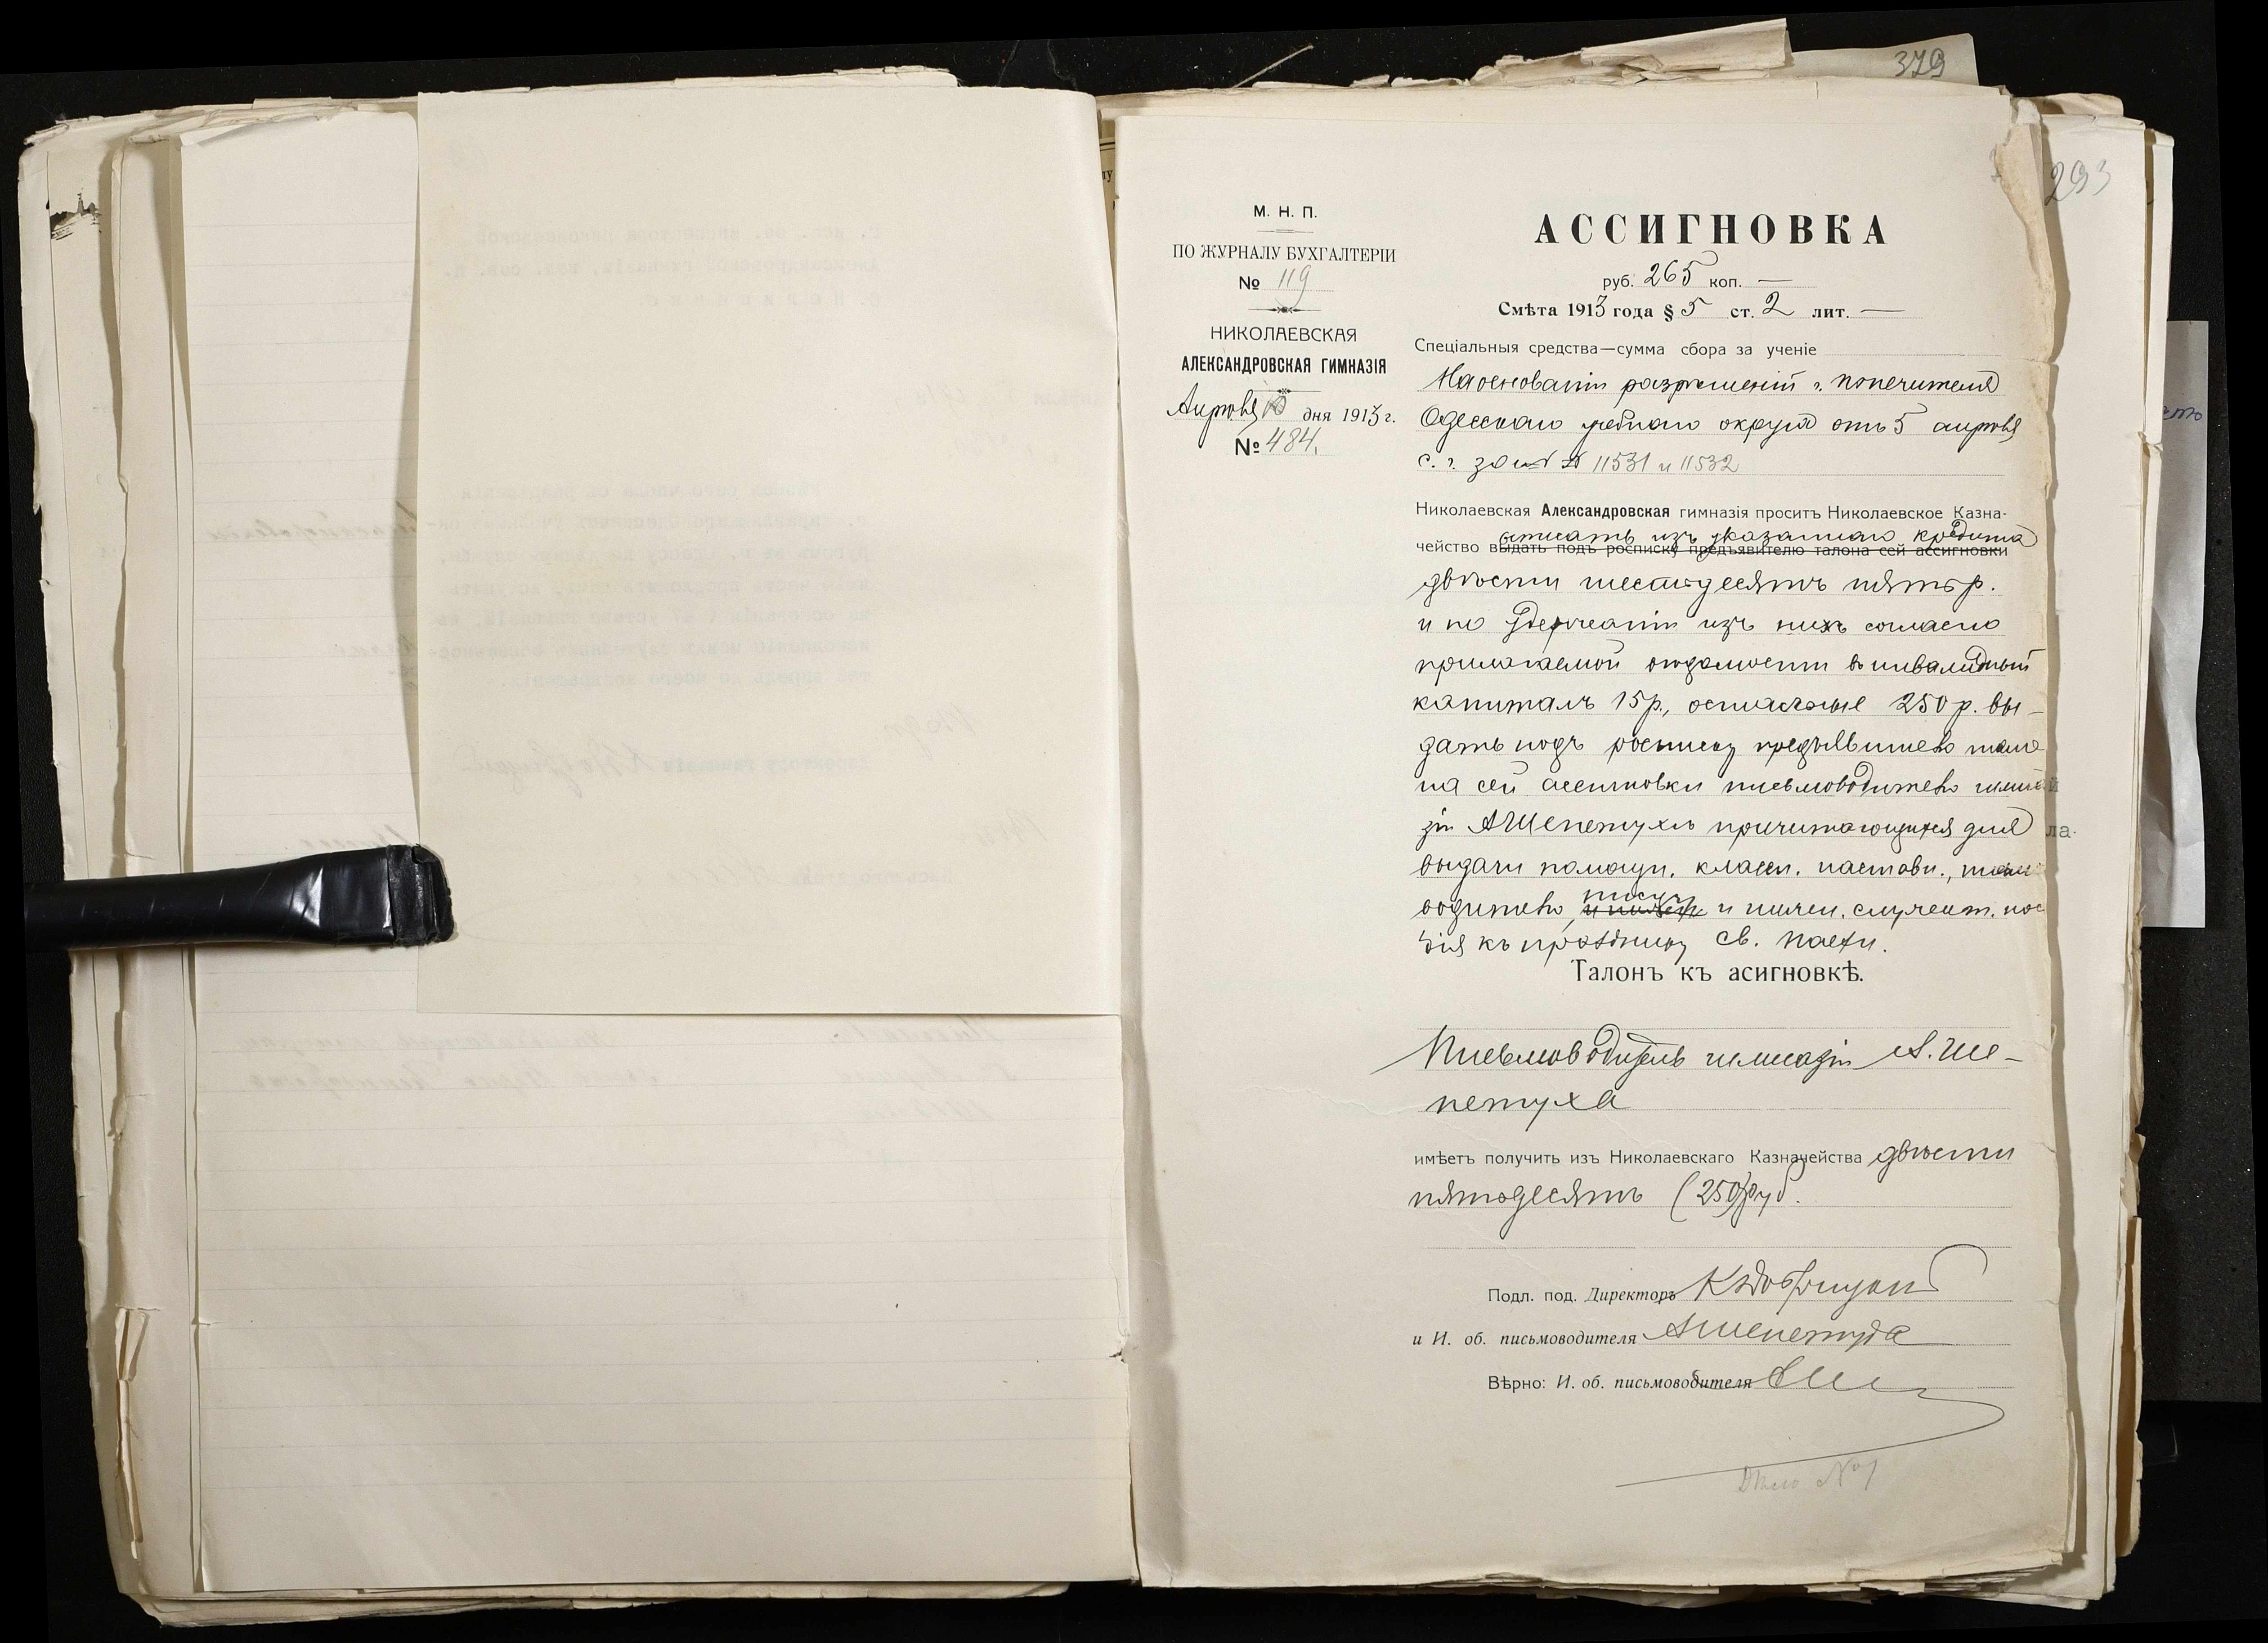 379
293
М. Н. П.
ПО ЖУРНАЛУ БУХГАЛТЕРІИ
№ 119
НИКОЛАЕВСКАЯ
АЛЕКСАНДРОВСКАЯ ГИМНАЗІЯ
Апрѣля 10 дня 1913 г.
№ 484.
АССИГНОВКА
руб. 265 коп. —
Смѣта 1913 года § 5 ст. 2 лит. —
Спеціальныя средства—сумма сбора за ученіе
На основаніи разрѣшеній г. попечителя
Одесскаго учебнаго округа отъ 5 апрѣля
с. г. за № 11531 и 11532
Николаевская Александровская гимназія проситъ Николаевское Казна-
списать изъ указаннаго кредита
чейство выдать подъ росписку предъявителю талона сей ассигновки
двѣсти шестьдесятъ пять р.
и по удержаніи изъ нихъ согласно
прилагаемой вѣдомости въ инвалидный
капиталъ 15 р., остальные 250 р. вы-
дать подъ росписку предъявителю тало
на сей ассигновки письмоводителю гимна
зіи А Шепетухѣ причитающихся для
выдачи помощн. классн. наставн., письмо
водителю, писцу и низшим. служит. пос
бія къ празднику св. Пасхи.
Талонъ къ асигновкѣ.
Письмоводитель гимназіи А. Ше-
петуха
имѣетъ получить изъ Николаевскаго Казначейства двѣсти
пятьдесятъ (250) руб.
Подл. под. Директоръ
и И. об. письмоводителя АШепетуха
Вѣрно: И. об. письмоводителя
Дѣло № 1